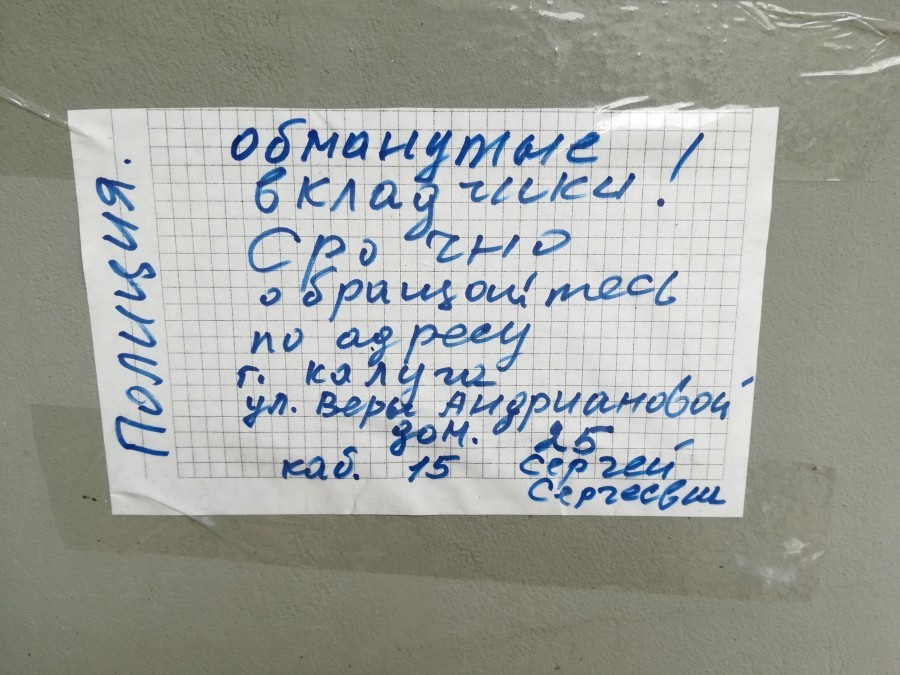 Полиция.
обманутые
вкладчики!
Срочно
обращайтесь
по адресу
г. калуга
ул. Веры Андриановой
дом. 25
каб. 15 Сергей
Сергеевич